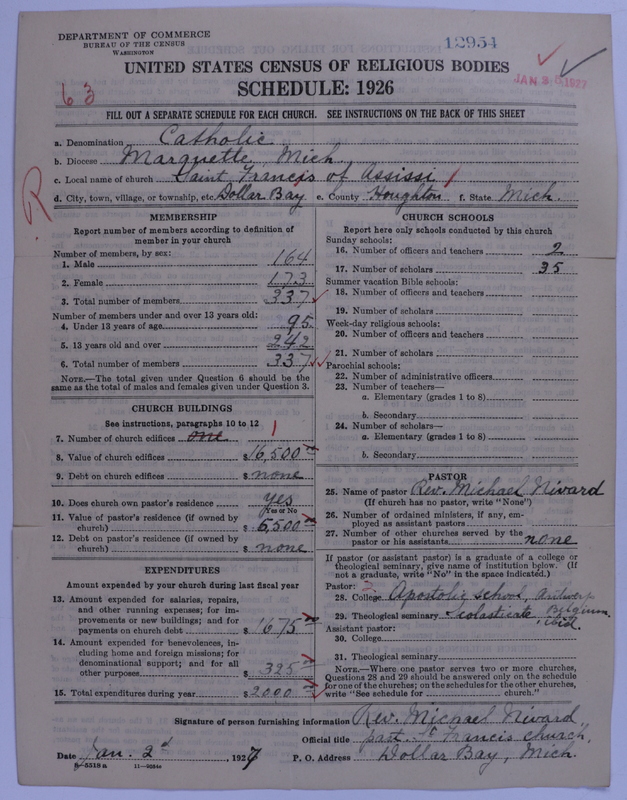 DEPARTMENT OF COMMERCE
BUREAU OF THE CENSUS
WASHINGTON
12954
UNITED STATES CENSUS OF RELIGIOUS BODIES
JAN 3 1927
63
SCHEDULE: 1926
FILL OUT A SEPARATE SCHEDULE FOR EACH CHURCH. SEE INSTRUCTIONS ON THE BACK OF THIS SHEET
a. Denomination Catholic
b. Diocese Marquette, Mich.
c. Local name of church Saint Francis of Assissi
R
d. City, town, village, or township, etc. Dollar Bay e. County Houghton f. State Mich.
MEMBERSHIP
Report number of members according to definition of
member in your church
Number of members, by sex:
1. Male 164
2. Female 173
3. Total number of members 337
Number of members under and over 13 years old:
4. Under 13 years of age 95
5. 13 years old and over 242
6. Total number of members 337
NOTE.—The total given under Question 6 should be the
same as the total of males and females given under Question 3.
CHURCH BUILDINGS
See instructions, paragraphs 10 to 12
7. Number of church edifices one 1
8. Value of church edifices $ 16,500
9. Debt on church edifices $ none
10. Does church own pastor's residence yes
Yes or No
11. Value of pastor's residence (if owned by
church) $ 6,500
12. Debt on pastor's residence (if owned by
church) $ none
EXPENDITURES
Amount expended by your church during last fiscal year
13. Amount expended for salaries, repairs,
and other running expenses; for im-
provements or new buildings; and for
payments on church debt $ 1675
14. Amount expended for benevolences, in-
cluding home and foreign missions; for
denominational support; and for all
other purposes $ 325
15. Total expenditures during year $ 2000
CHURCH SCHOOLS
Report here only schools conducted by this church
Sunday schools:
16. Number of officers and teachers 2
17. Number of scholars 35
Summer vacation Bible schools:
18. Number of officers and teachers
19. Number of scholars
Week-day religious schools:
20. Number of officers and teachers
21. Number of scholars
Parochial schools:
22. Number of administrative officers
23. Number of teachers—
a. Elementary (grades 1 to 8)
b. Secondary
24. Number of scholars—
a. Elementary (grades 1 to 8)
b. Secondary
PASTOR
25. Name of pastor Rev. Michael Nivard
(If church has no pastor, write "None")
26. Number of ordained ministers, if any, em-
ployed as assistant pastors
27. Number of other churches served by the
pastor or his assistants none
If pastor (or assistant pastor) is a graduate of a college or
theological seminary, give name of institution below. (If
not a graduate, write "No" in the space indicated.)
Pastor:
28. College Apostolic School, Antwerp
Belgium
29. Theological seminary Scolasticate, ibid.
Assistant pastor:
30. College
31. Theological seminary
NOTE.—Where one pastor serves two or more churches,
Questions 28 and 29 should be answered only on the schedule
for one of the churches; on the schedules for the other churches,
write "See schedule for church."
Signature of person furnishing information Rev. Michael Nivard
Official title past. St Francis Church,
Date Jan. 2d, 1927 P. O. Address Dollar Bay, Mich.
8-5519a 11-9684a